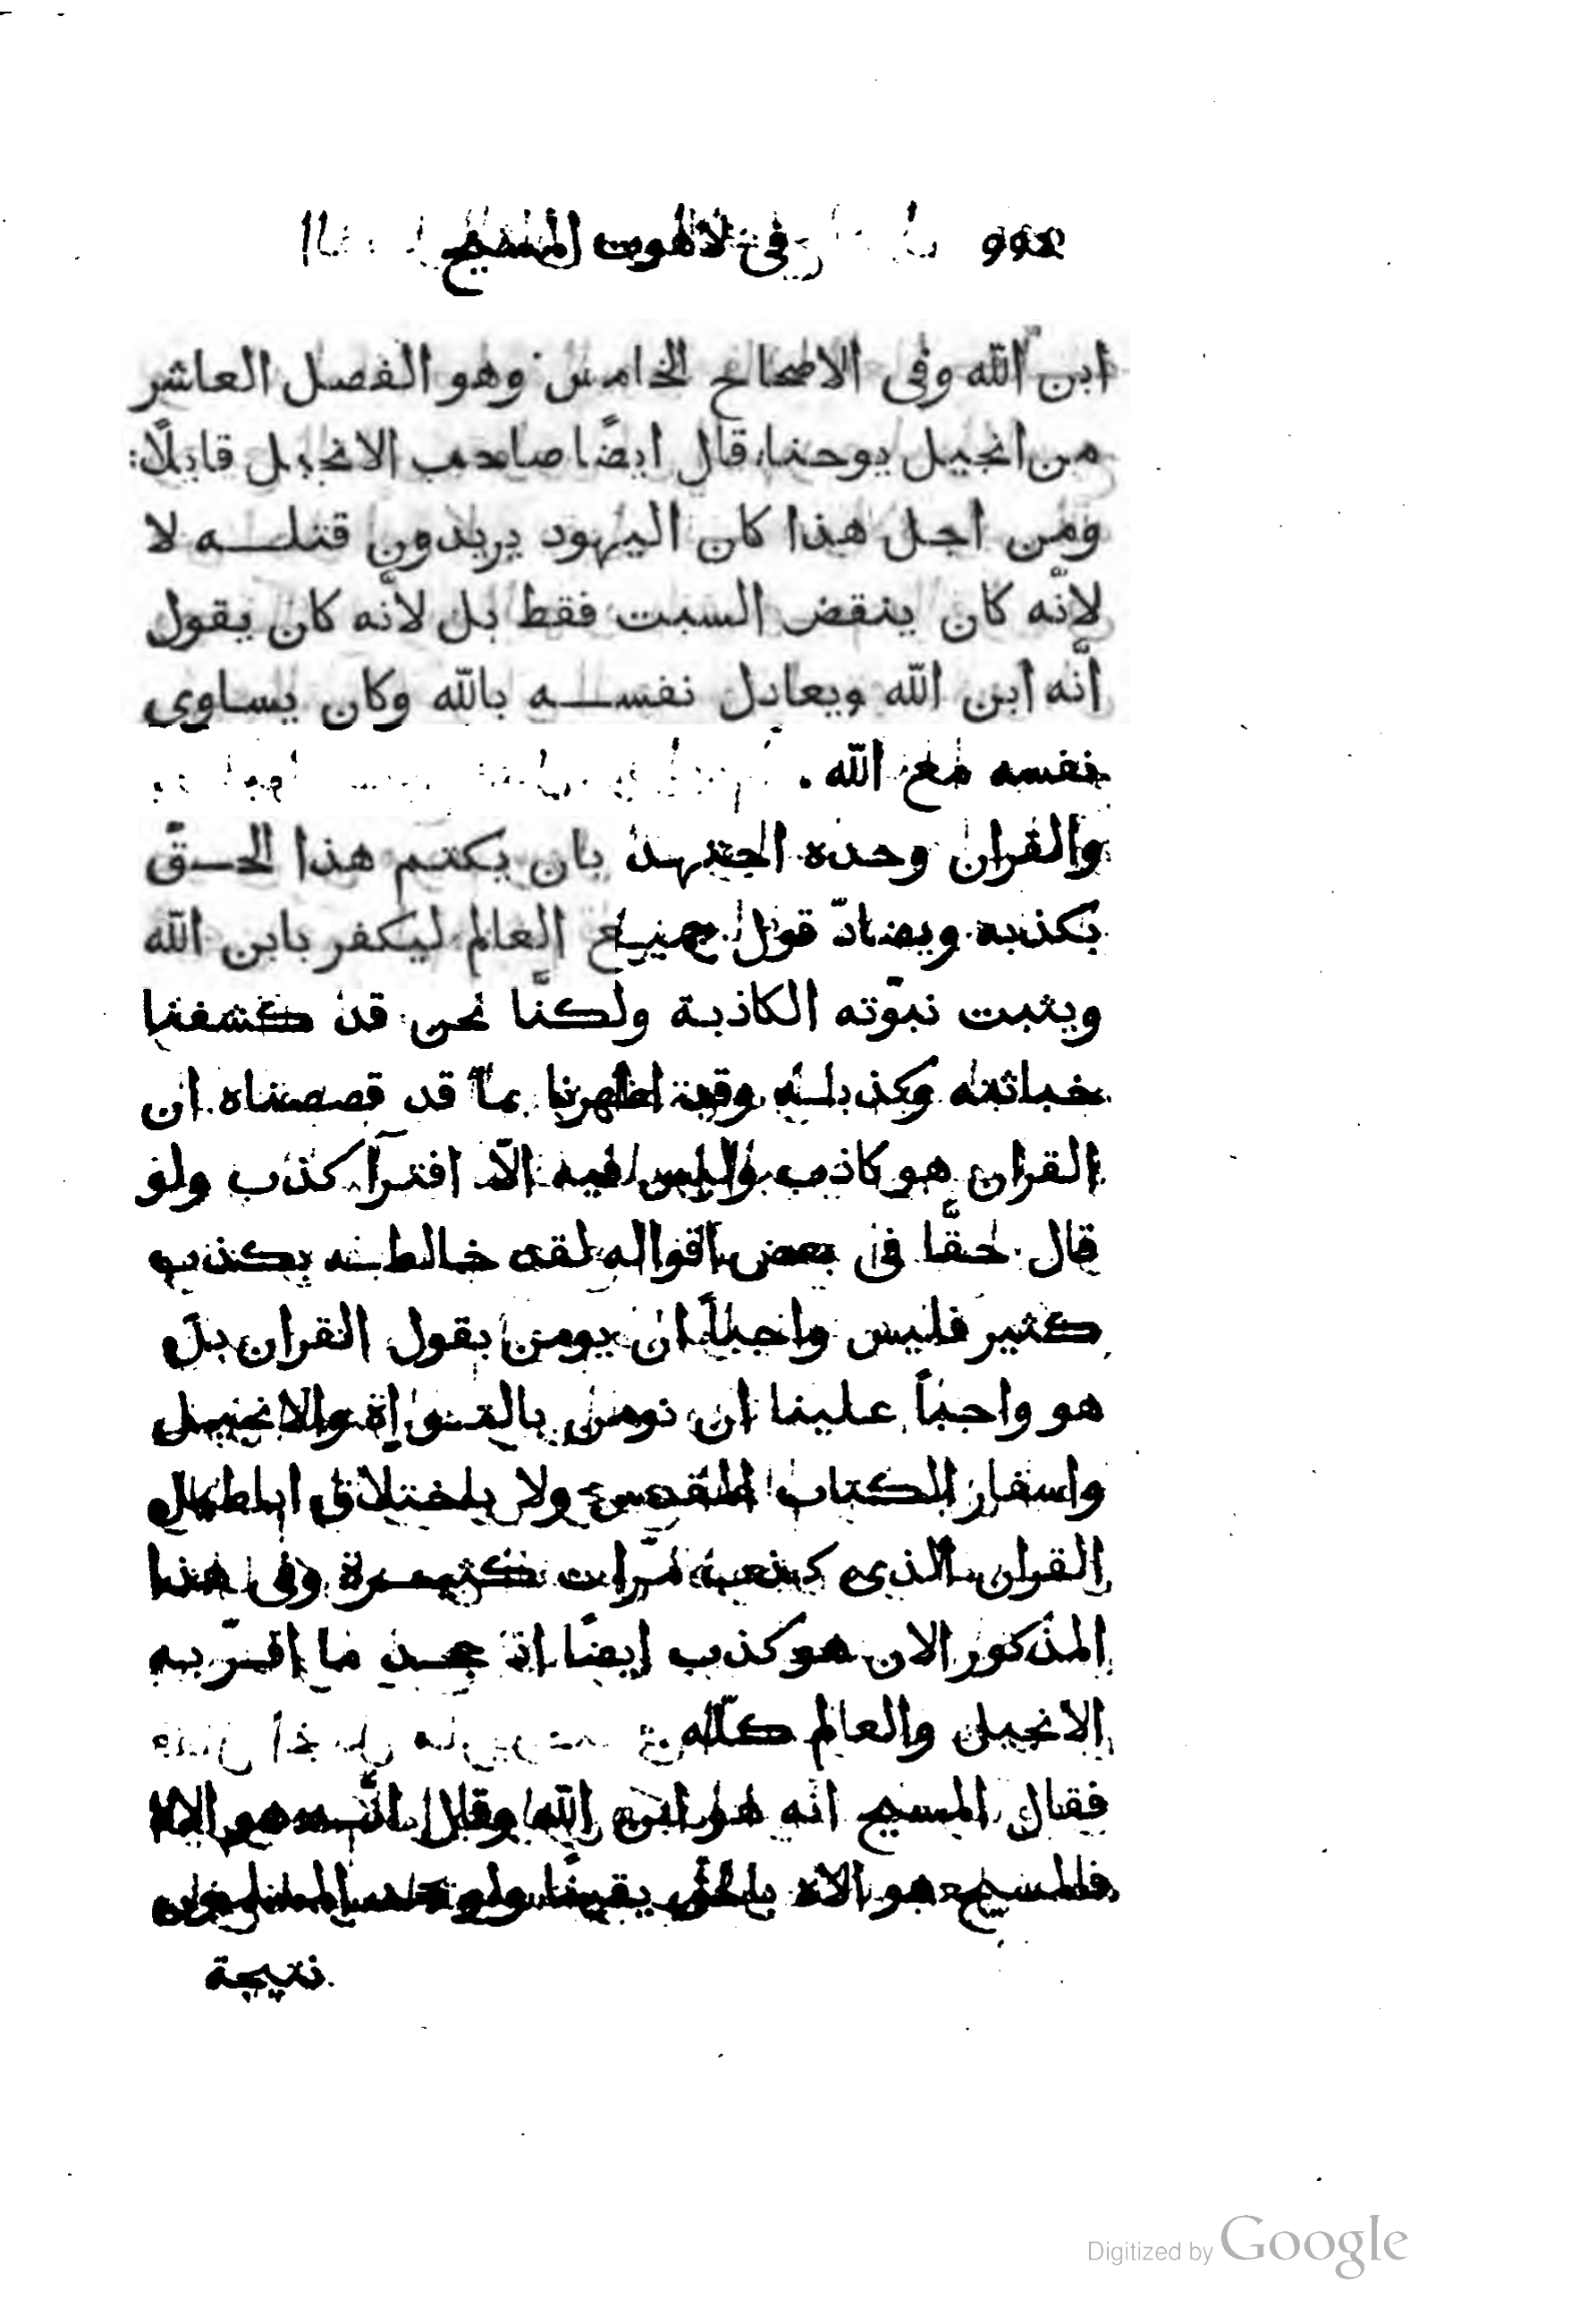 في لاهوت المسيح
ابن الله وفى الاصحاح الخامس وهو الفصل العاشر
من انجيل يوحنا قال ايضًا صاحب الانجيل قايلًا:
ومن اجل هذا كان اليهود يريدون قتلـه لا
لانّه كان ينقض السبت فقط بل لانّه كان يقول
انّه ابن الله ويعادل نفسـه بالله وكان يساوى
نفسه مع الله .
والقران وحده اجتهد بان يكتم هذا الحـقّ
بكذبه ويضادّ قول جميع العالم ليكفر بابن الله
ويثبت نبوّته الكاذبة ولكنّا نحن قد كشفنا
خباثته وكذبـه وقد اظهرنا بمّا قد قصصناه ان
القران هو كاذب وليس فيه الّا افترآ كذب ولو
قال حقًّا فى بعض اقواله لقد خالطـه بكذب
كثير فليس واجباً ان يومن بقول القران بل
هو واجباً علينا ان نومن بالتوراة والانجيل
واسفار الكتاب المقدس ولا باختلاق اباطيل
القران الذى كذبه مرّات كثيـرة وفى هذا
المذكور الان هو كذب ايضًا اذ جحـد ما اقـرّ به
الانجيل والعالم كلّه
فقال المسيح انه هو ابن الله وقال انّـه هو الاه
فالمسيح هو الاه بالحق يقينًا ولو جحد المسلمون
نتيجة
Digitized by Google